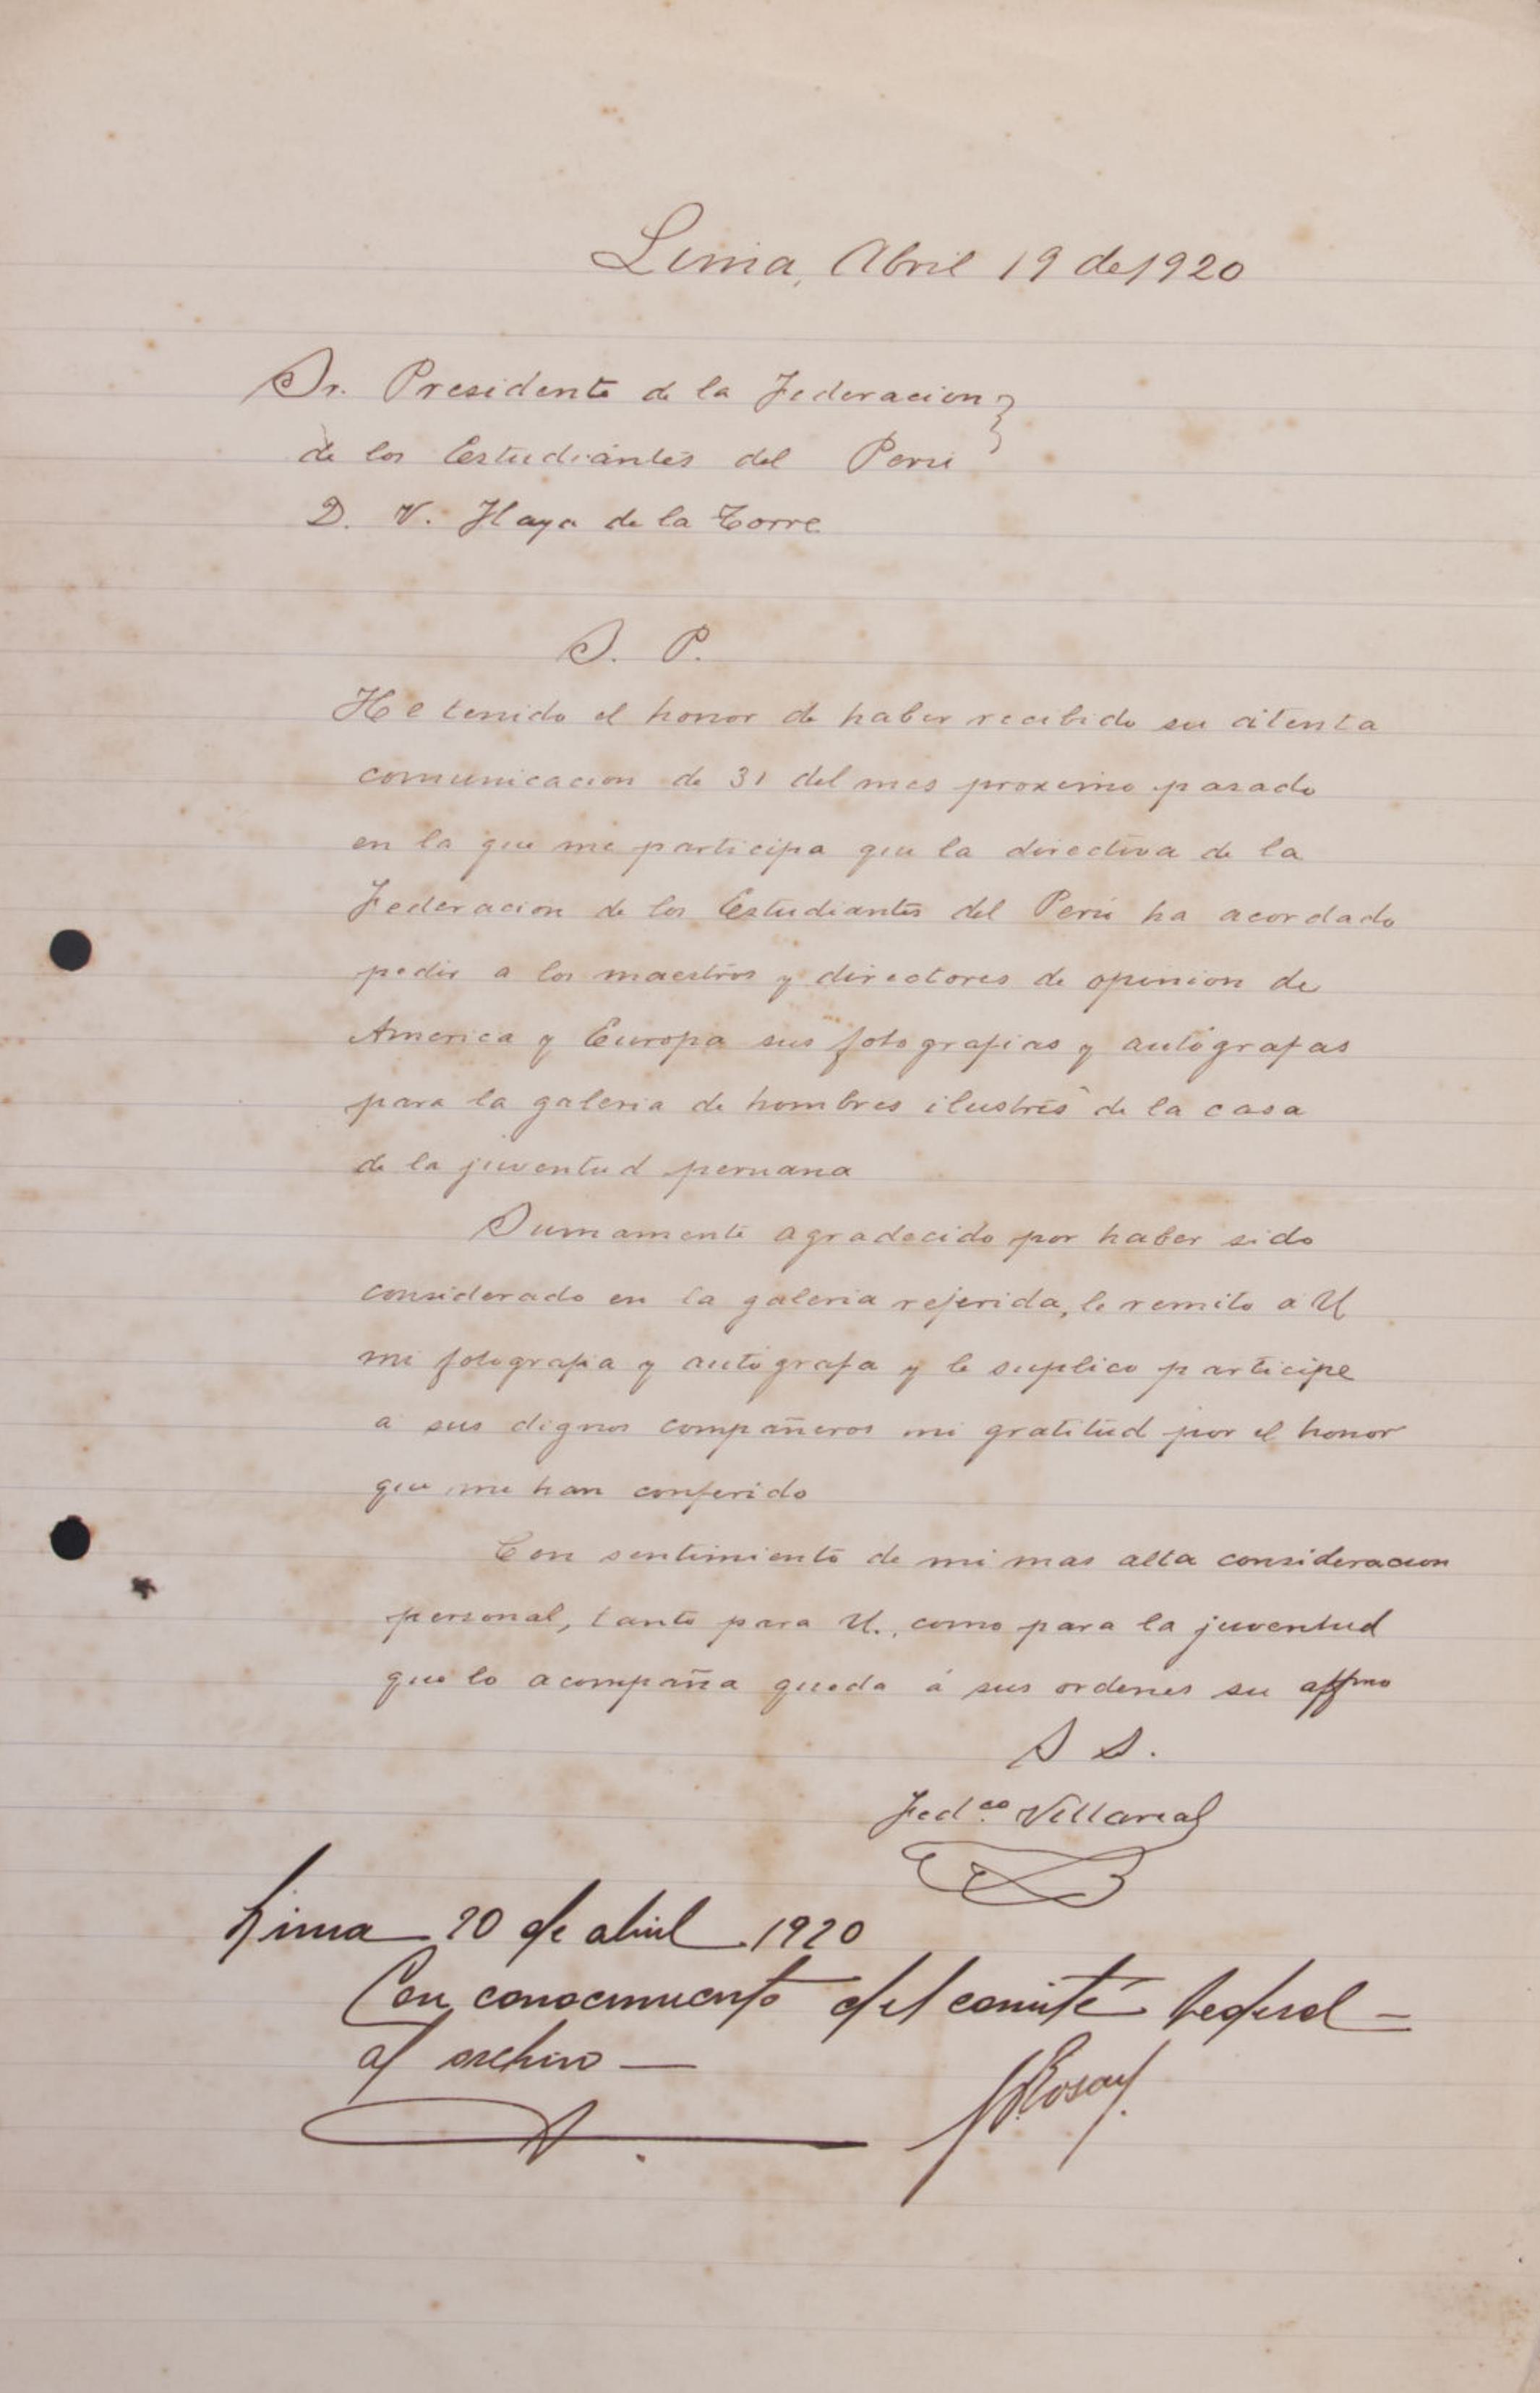 Lima, Abril 19 de 1920
Sr. Presidente de la Federacion
de los Estudiantes del Perú
D. V. Haya de la Torre
S. P.
He tenido el honor de haber recibido su atenta
comunicacion de 31 del mes proximo pasado
en la que me participa que la directiva de la
Federacion de los Estudiantes del Perú ha acordado
pedir a los maestros y directores de opinion de
America y Europa sus fotografias y autógrafas
para la galeria de hombres ilustres de la casa
de la juventud peruana
Sumamente agradecido por haber sido
considerado en la galeria referida, le remito a U
mi fotografia y autógrafa y le suplico participe
a sus dignos compañeros mi gratitud por el honor
que me han conferido
Con sentimiento de mi mas alta consideracion
personal, tanto para U., como para la juventud
que lo acompaña queda á sus ordenes su affmo
S S.
Fedco. Villareal
Lima 20 de abril 1920
Con conocimiento del comité federal –
al archivo —